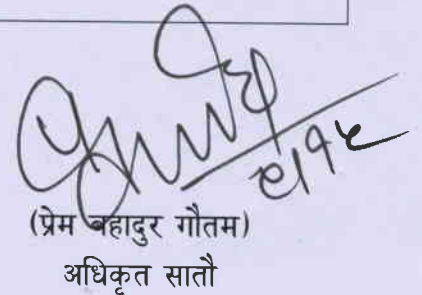 ९।१५
(प्रेम बहादुर गौतम)
अधिकृत सातौ